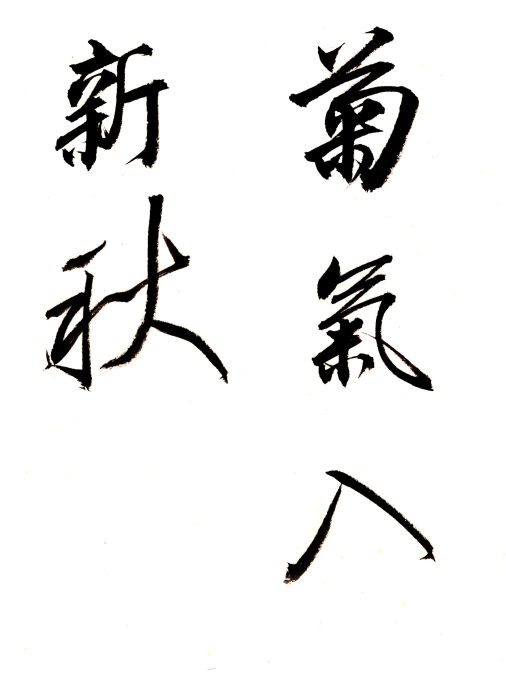 菊氣入
新秋